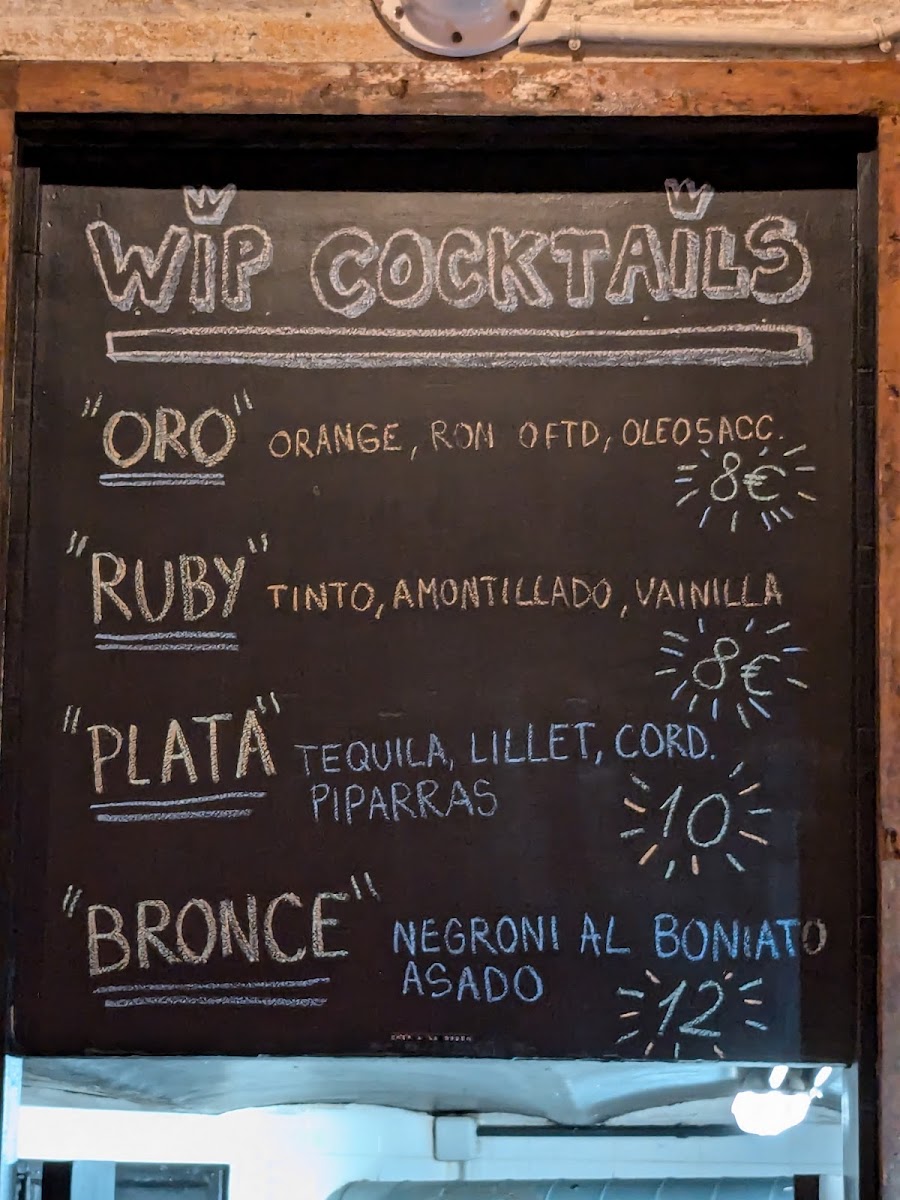 WIP COCKTAILS
"ORO" ORANGE, RON OFTD, OLEOSACC.
8€
"RUBY" TINTO, AMONTILLADO, VAINILLA
8€
"PLATA" TEQUILA, LILLET, CORD.
PIPARRAS
10
"BRONCE" NEGRONI AL BONIATO
ASADO
12